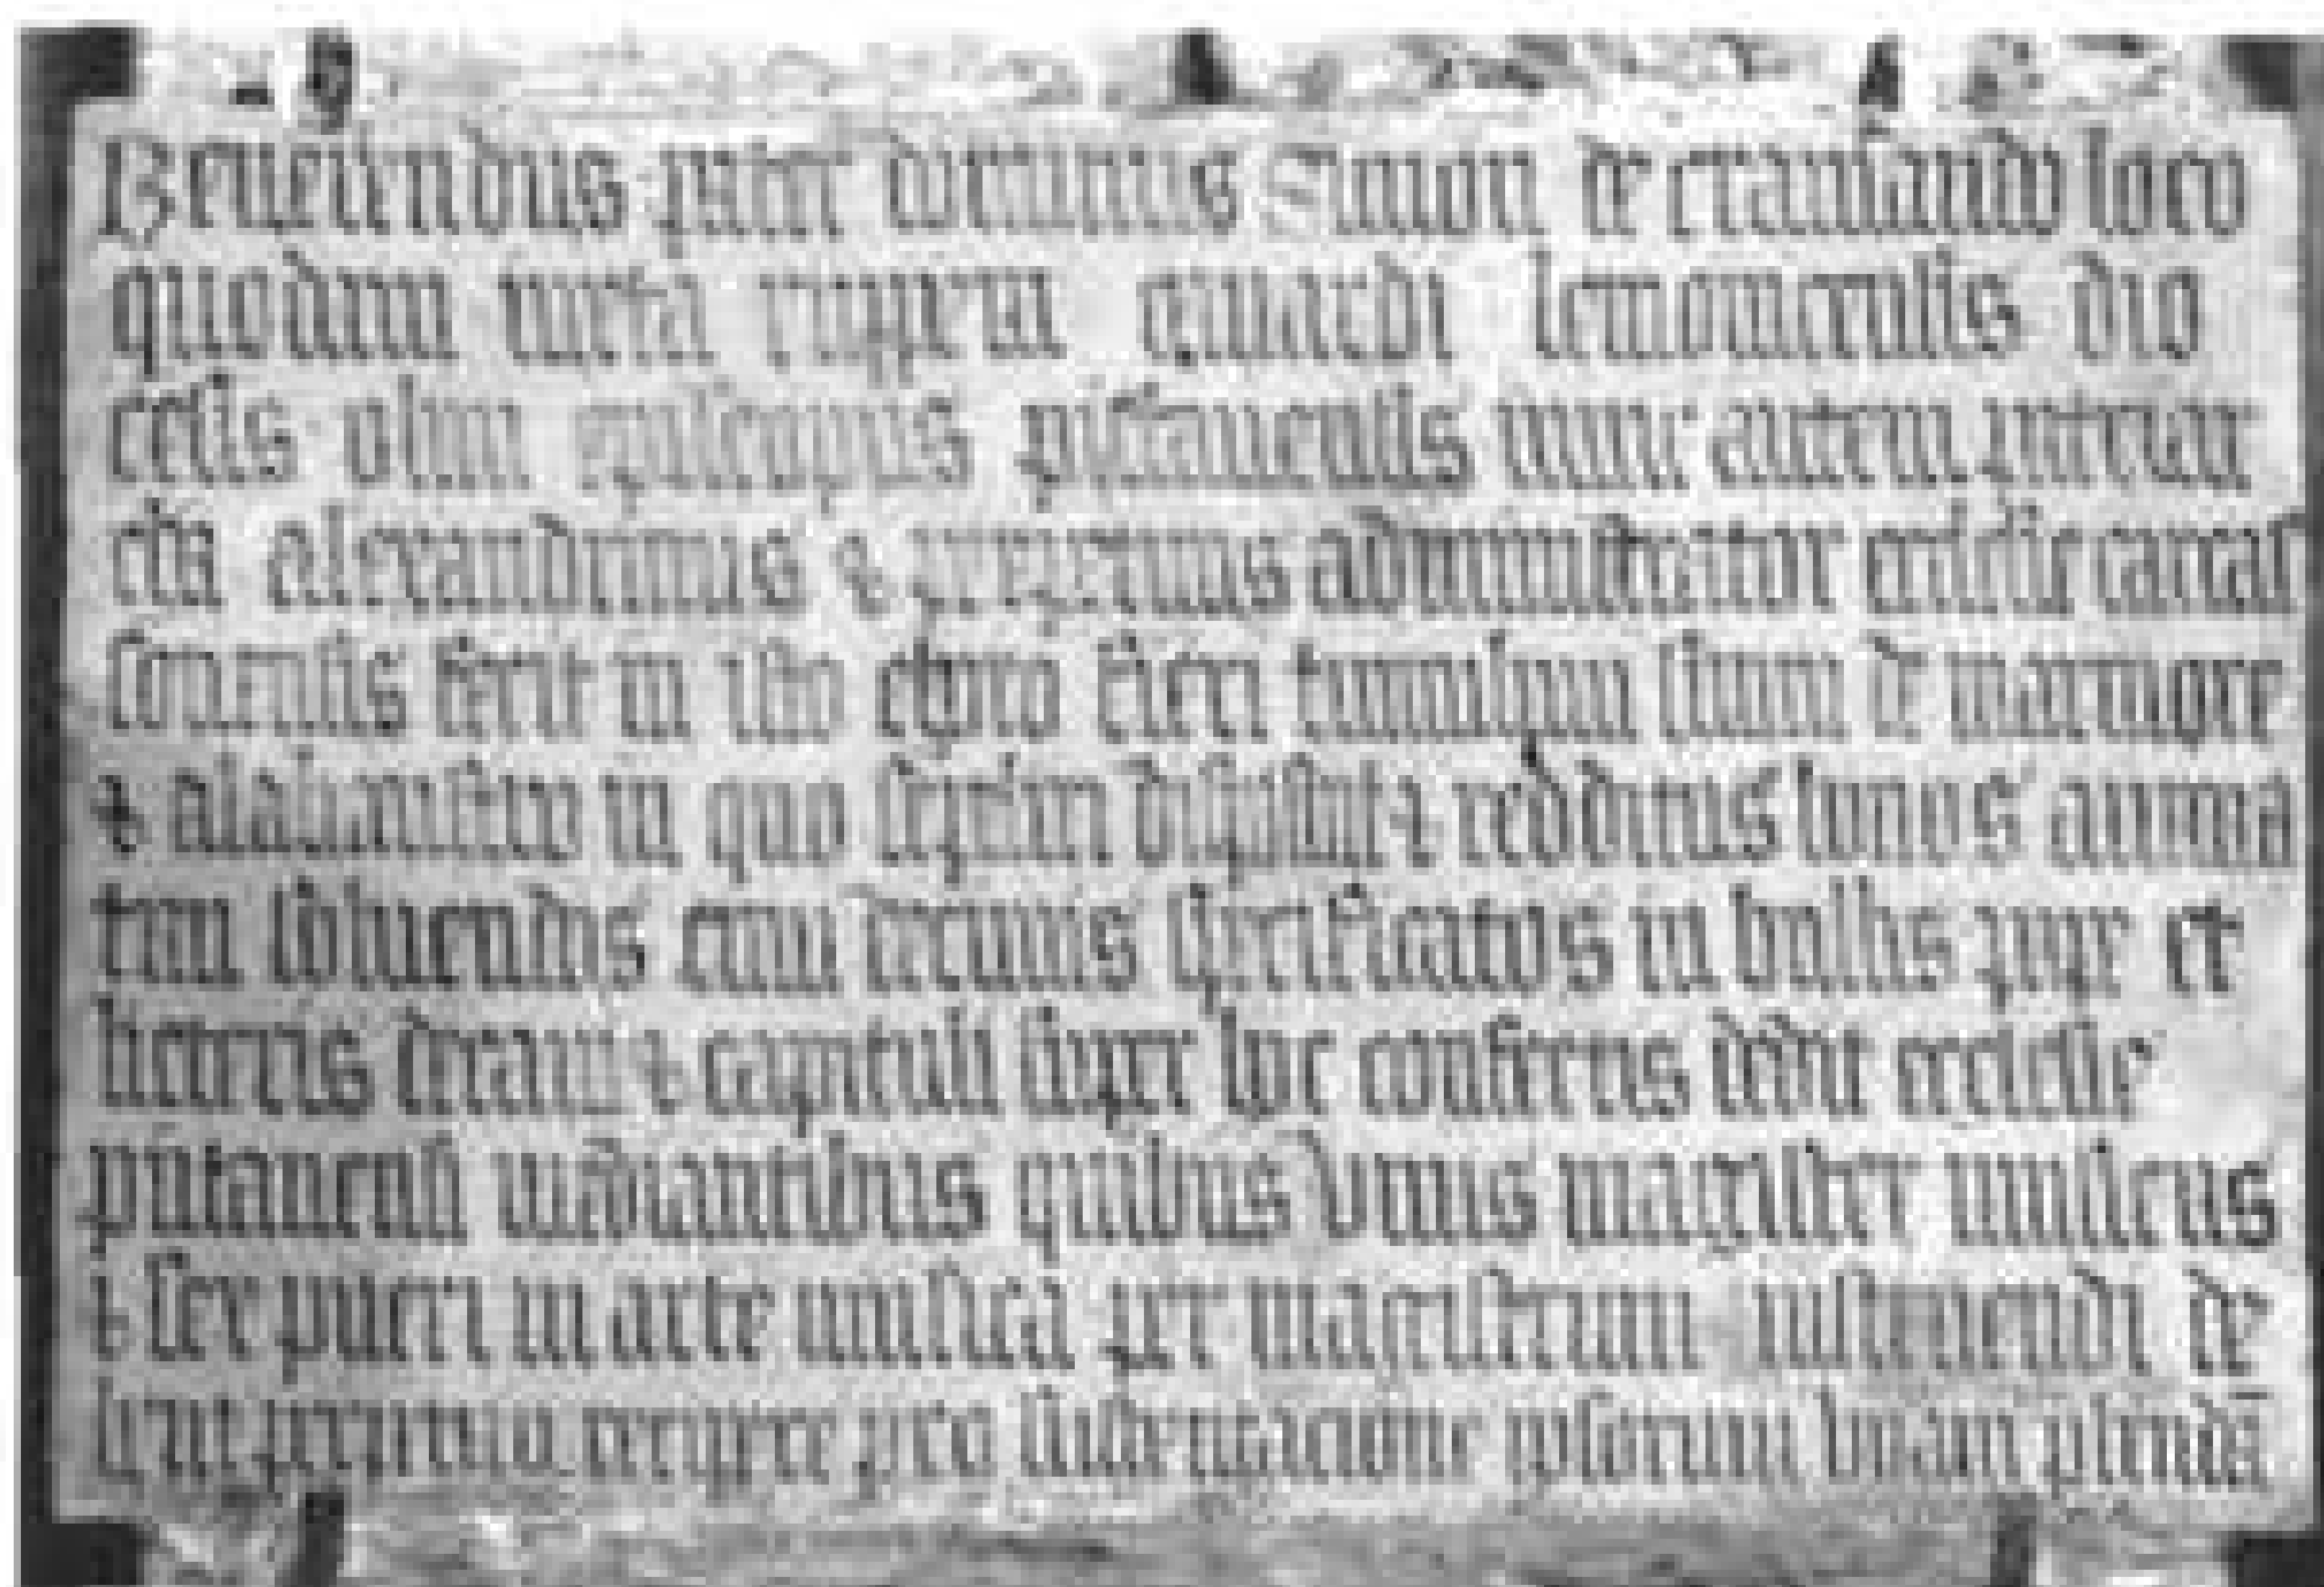 Reuerendus pater dominus Simon de cramaudo loco
quodam iuxta rupem euardi lemouicensis dio
cesis olim episcopus pictauensis nunc autem patriar
cha alexandrinus & perpetuus administrator ecclesie carcas
sonensis fecit in isto choro fieri tumulum suum de marmore
& alabaustro in quo sepeliri disposuit & redditus bonos
tim soluendos cum ceteris specificatos in bullis pape et
litteris decani & capituli super hoc confectis dedit ecclesie
pictauensi mediantibus quibus vnus magister musicus
& sex pueri in arte musica per magistrum instruendi de
bent perpetuo percipere pro sustentacione ipsorum